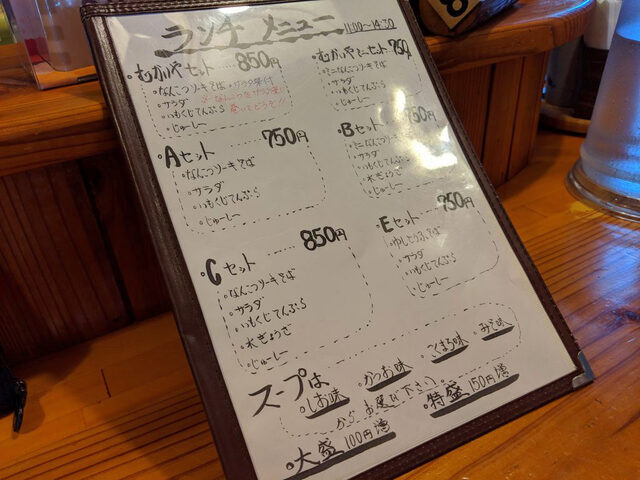 ランチ メニュー 11:00〜14:30
・むかいやセット 850円
・なんこつソーキそば
・サラダ
・いもくじてんぷら
・じゅーしー
・むかいやミニセット 750円
・ミニなんこつソーキそば
・サラダ
・いもくじてんぷら
・じゅーしー
・Aセット 750円
・なんこつソーキそば
・サラダ
・いもくじてんぷら
・じゅーしー
・Bセット 750円
・ミニなんこつソーキそば
・サラダ
・いもくじてんぷら
・水ぎょうざ
・じゅーしー
・Cセット 850円
・なんこつソーキそば
・サラダ
・いもくじてんぷら
・水ぎょうざ
・じゅーしー
・Eセット 750円
・ゆしとうふそば
・サラダ
・いもくじてんぷら
・じゅーしー
スープは
・しお味 ・かつお味 ・ごまみそ味 ・みそ味
からお選び下さい
・大盛 100円増 ・特盛 150円増